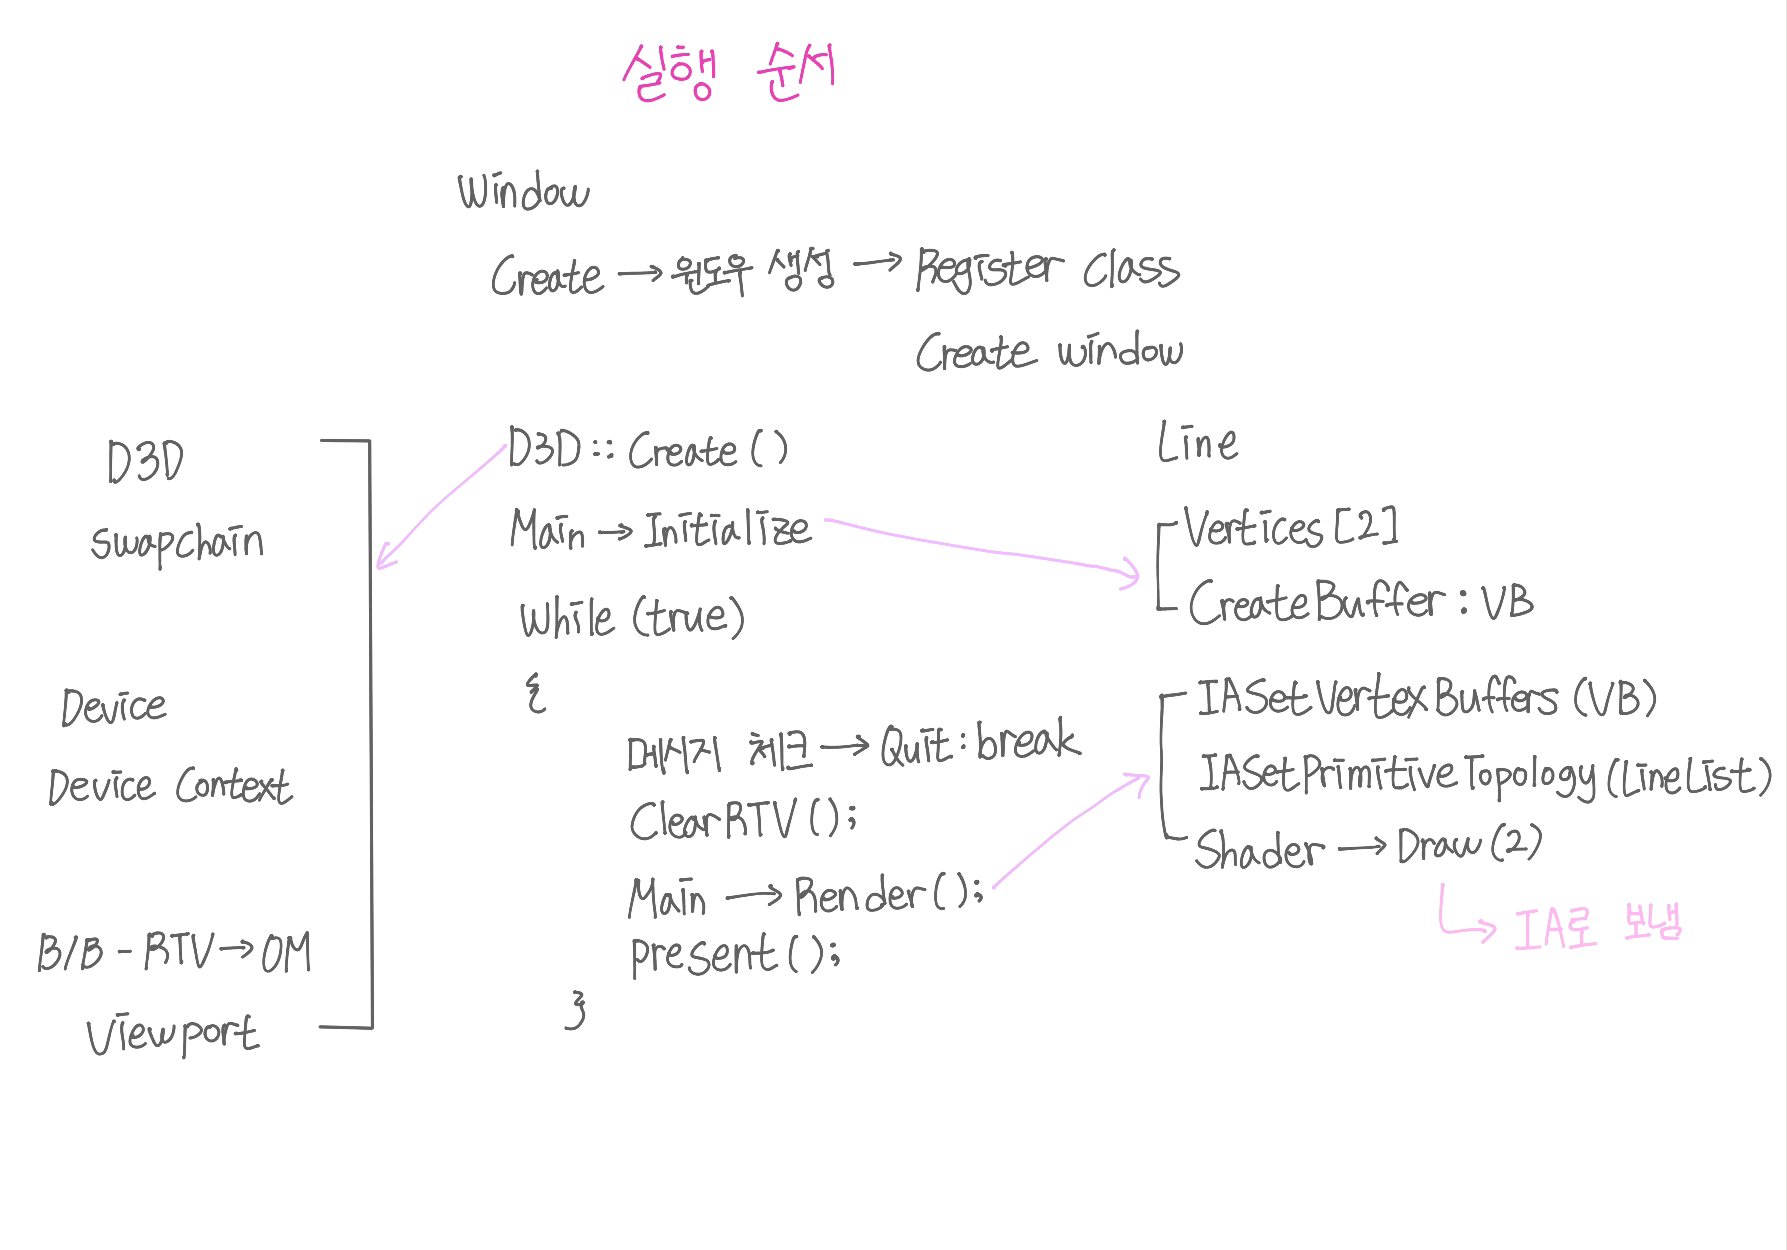 실행 순서
Window
Create → 윈도우 생성 → Register Class
Create window
D3D
Swapchain
Device
Device Context
B/B - RTV → OM
Viewport
D3D :: Create ( )
Main → Initialize
While (true)
{
메시지 체크 → Quit : break
ClearRTV ( );
Main → Render ( );
Present ( );
}
Line
Vertices [2]
CreateBuffer : VB
IASetVertexBuffers (VB)
IASetPrimitiveTopology (LineList)
Shader → Draw (2)
→ IA로 보냄